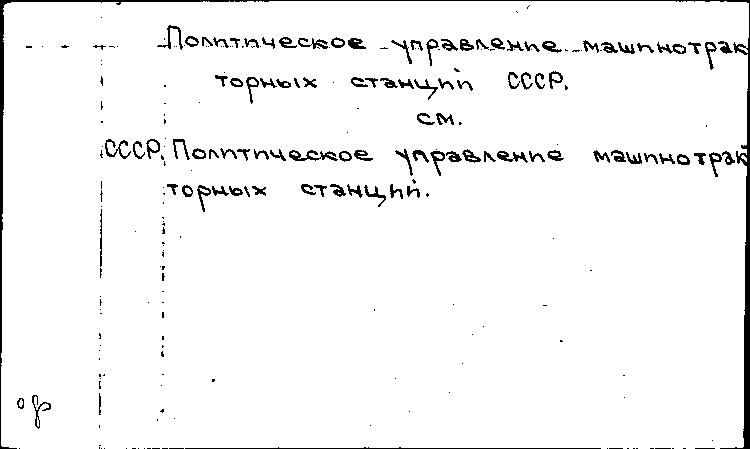 Политическое управление машинотрак
торных станций СССР.
см.
СССР. Политическое управление машинотрак
торных станций.